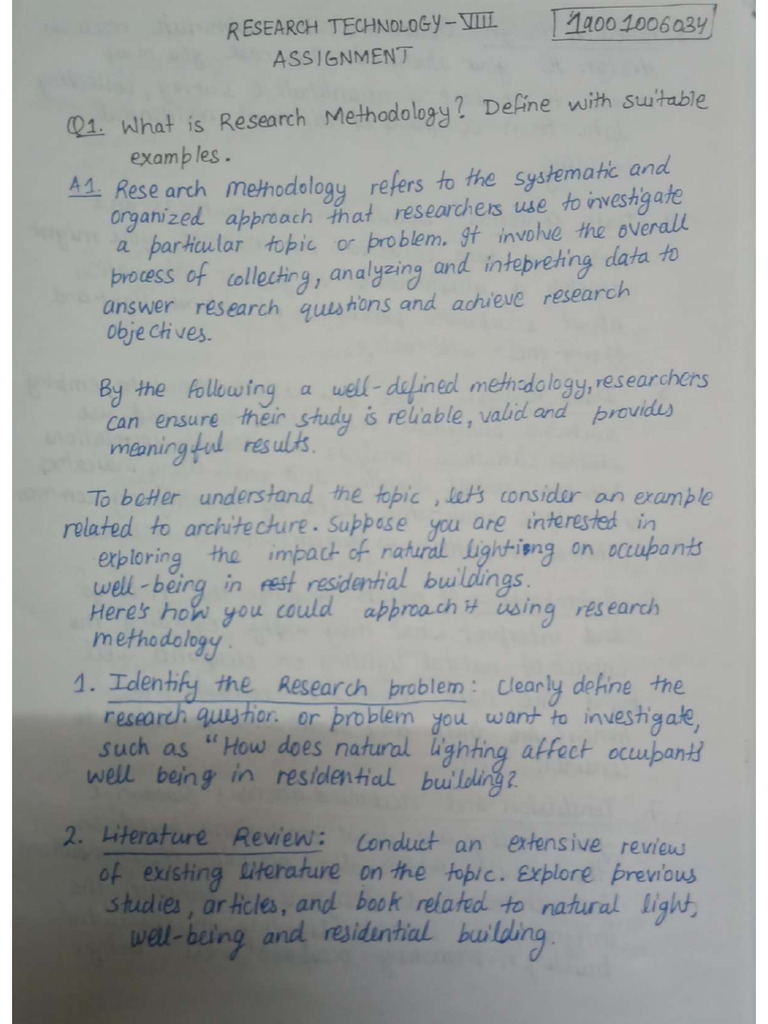 RESEARCH TECHNOLOGY-VIII
19001006034
ASSIGNMENT
Q1. What is Research Methodology? Define with suitable
examples.
A1. Research methodology refers to the systematic and
organized approach that researchers use to investigate
a particular topic or problem. It involve the overall
process of collecting, analyzing and intepreting data to
answer research questions and achieve research
objectives.
By the following a well-defined methodology, researchers
can ensure their study is reliable, valid and provides
meaningful results.
To better understand the topic, let's consider an example
related to architecture. Suppose you are interested in
exploring the impact of natural lightiong on occupants
well-being in rest residential buildings.
Here's how you could approach it using research
methodology.
1. Identify the Research problem: Clearly define the
research question or problem you want to investigate,
such as "How does natural lighting affect occupants'
well being in residential building?
2. Literature Review: Conduct an extensive review
of existing literature on the topic. Explore previous
studies, articles, and book related to natural light,
well-being and residential building.